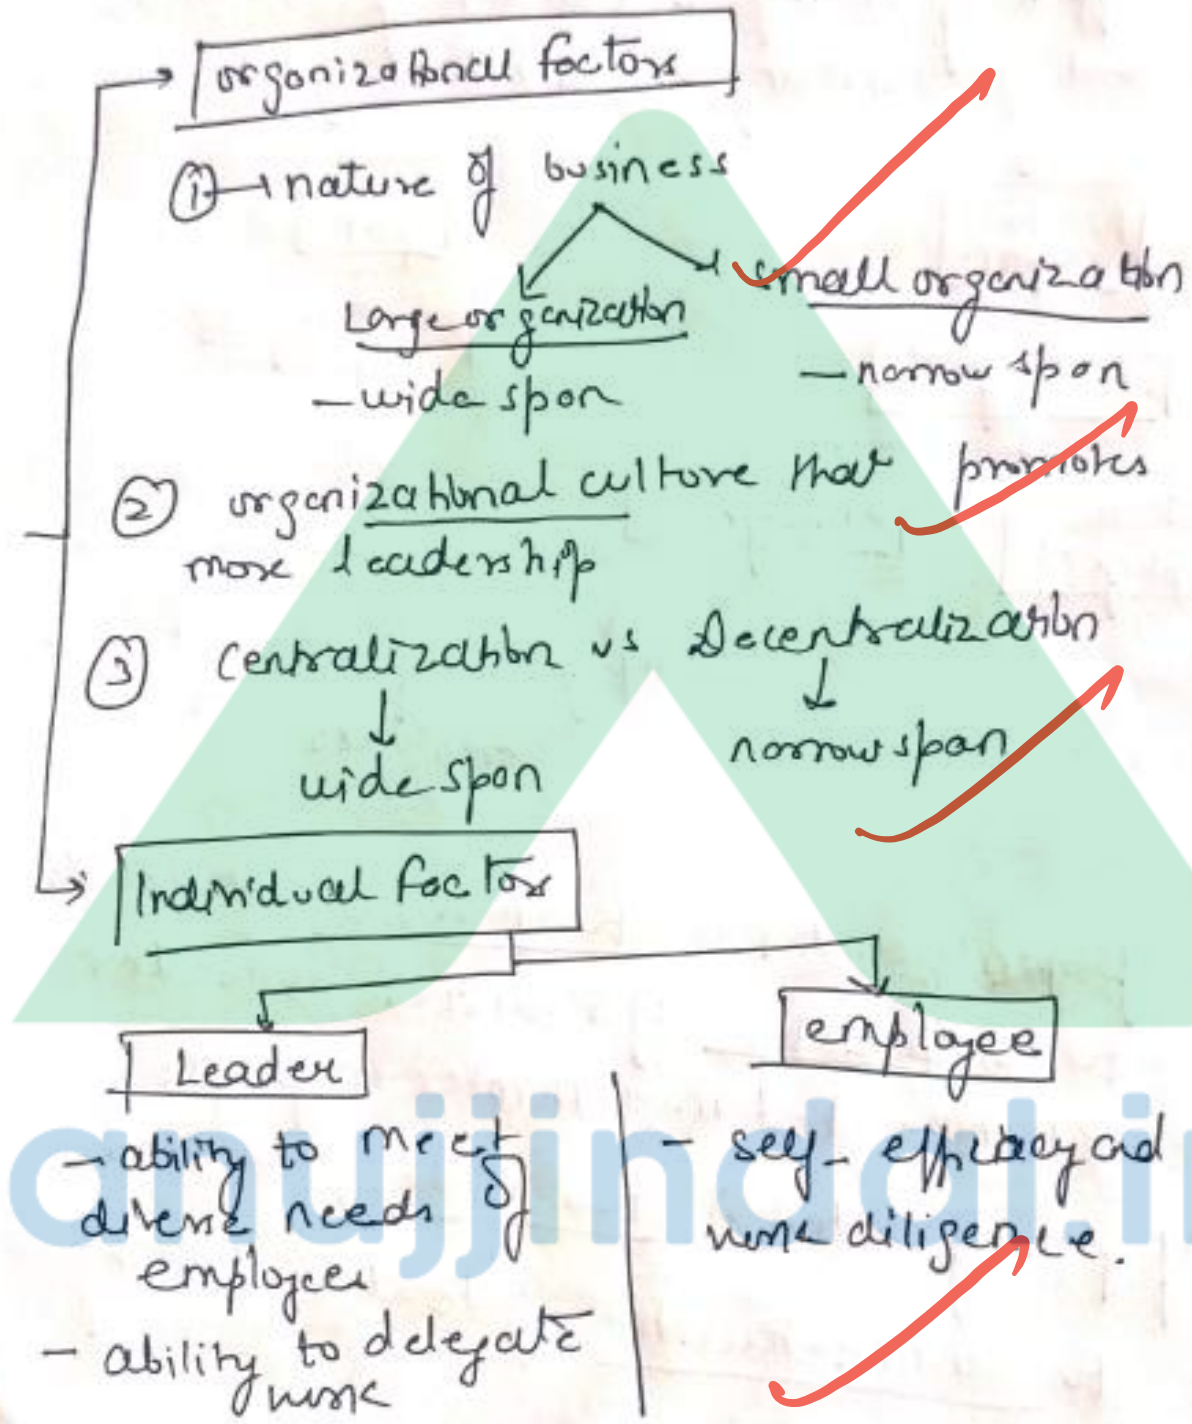 organizational factors
① → nature of business
Large organization
small organization
- wide span
- narrow span
② organizational culture that promotes
more leadership
③ Centralization vs Decentralization
wide span
narrow span
Individual factors
Leader
employee
- ability to meet
diverse needs of
employees
- ability to delegate
work
- self-efficacy and
work diligence.
anujjindal.in